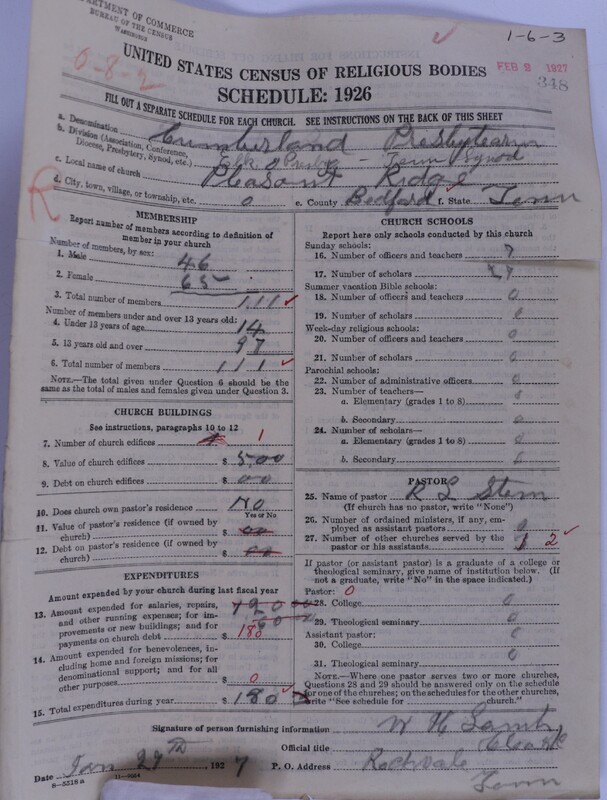 DEPARTMENT OF COMMERCE
BUREAU OF THE CENSUS
WASHINGTON
1-6-3
0-8-2
FEB 2 1927
348
UNITED STATES CENSUS OF RELIGIOUS BODIES
SCHEDULE: 1926
FILL OUT A SEPARATE SCHEDULE FOR EACH CHURCH. SEE INSTRUCTIONS ON THE BACK OF THIS SHEET
a. Denomination Cumberland Presbyterin
b. Division (Association, Conference, Diocese, Presbytery, Synod, etc.) Elk Presby - Tenn Synod
c. Local name of church Pleasant Ridge
R
d. City, town, village, or township, etc. 0 e. County Bedford f. State Tenn
MEMBERSHIP
Report number of members according to definition of
member in your church
Number of members, by sex:
1. Male 46
2. Female 65
3. Total number of members 111
Number of members under and over 13 years old:
4. Under 13 years of age 14
5. 13 years old and over 97
6. Total number of members 111
NOTE.—The total given under Question 6 should be the
same as the total of males and females given under Question 3.
CHURCH BUILDINGS
See instructions, paragraphs 10 to 12
7. Number of church edifices 1
8. Value of church edifices $ 500
9. Debt on church edifices $ 00
10. Does church own pastor's residence? No
Yes or No
11. Value of pastor's residence (if owned by
church) $ 00
12. Debt on pastor's residence (if owned by
church) $ 00
EXPENDITURES
Amount expended by your church during last fiscal year
13. Amount expended for salaries, repairs,
and other running expenses; for im-
provements or new buildings; and for
payments on church debt $ 180
14. Amount expended for benevolences, in-
cluding home and foreign missions; for
denominational support; and for all
other purposes $ 0
15. Total expenditures during year $ 180
CHURCH SCHOOLS
Report here only schools conducted by this church
Sunday schools:
16. Number of officers and teachers 7
17. Number of scholars
Summer vacation Bible schools:
18. Number of officers and teachers 0
19. Number of scholars 0
Week-day religious schools:
20. Number of officers and teachers 0
21. Number of scholars 0
Parochial schools:
22. Number of administrative officers 0
23. Number of teachers—
a. Elementary (grades 1 to 8) 0
b. Secondary 0
24. Number of scholars—
a. Elementary (grades 1 to 8) 0
b. Secondary 0
PASTOR
25. Name of pastor R L Stem
(If church has no pastor, write "None")
26. Number of ordained ministers, if any, em-
ployed as assistant pastors 0
27. Number of other churches served by the
pastor or his assistants 2
If pastor (or assistant pastor) is a graduate of a college or
theological seminary, give name of institution below. (If
not a graduate, write "No" in the space indicated.)
Pastor: 0
28. College 0
29. Theological seminary 0
Assistant pastor:
30. College 0
31. Theological seminary 0
NOTE.—Where one pastor serves two or more churches,
Questions 28 and 29 should be answered only on the schedule
for one of the churches; on the schedules for the other churches,
write "See schedule for church."
Signature of person furnishing information W H Lamb
Official title Clerk
Date Jan 29th, 1927 P. O. Address Rockvale
Tenn
8-5518a 11-9524